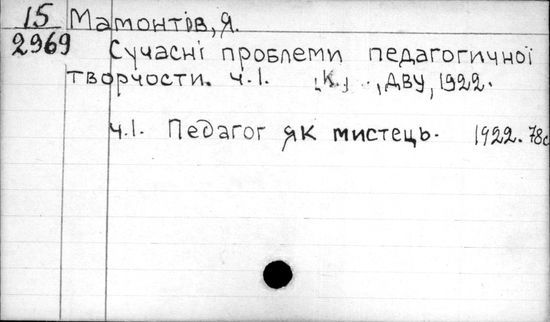 15 Мамонтів, Я.
2969 Сучасні проблеми педагогичної
творчости. ч.1. [К.], ДВУ, 1922.
ч.1. Педагог як мистець. 1922. 78с